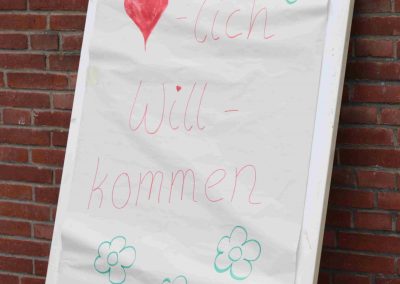 -lich
Will-
kommen